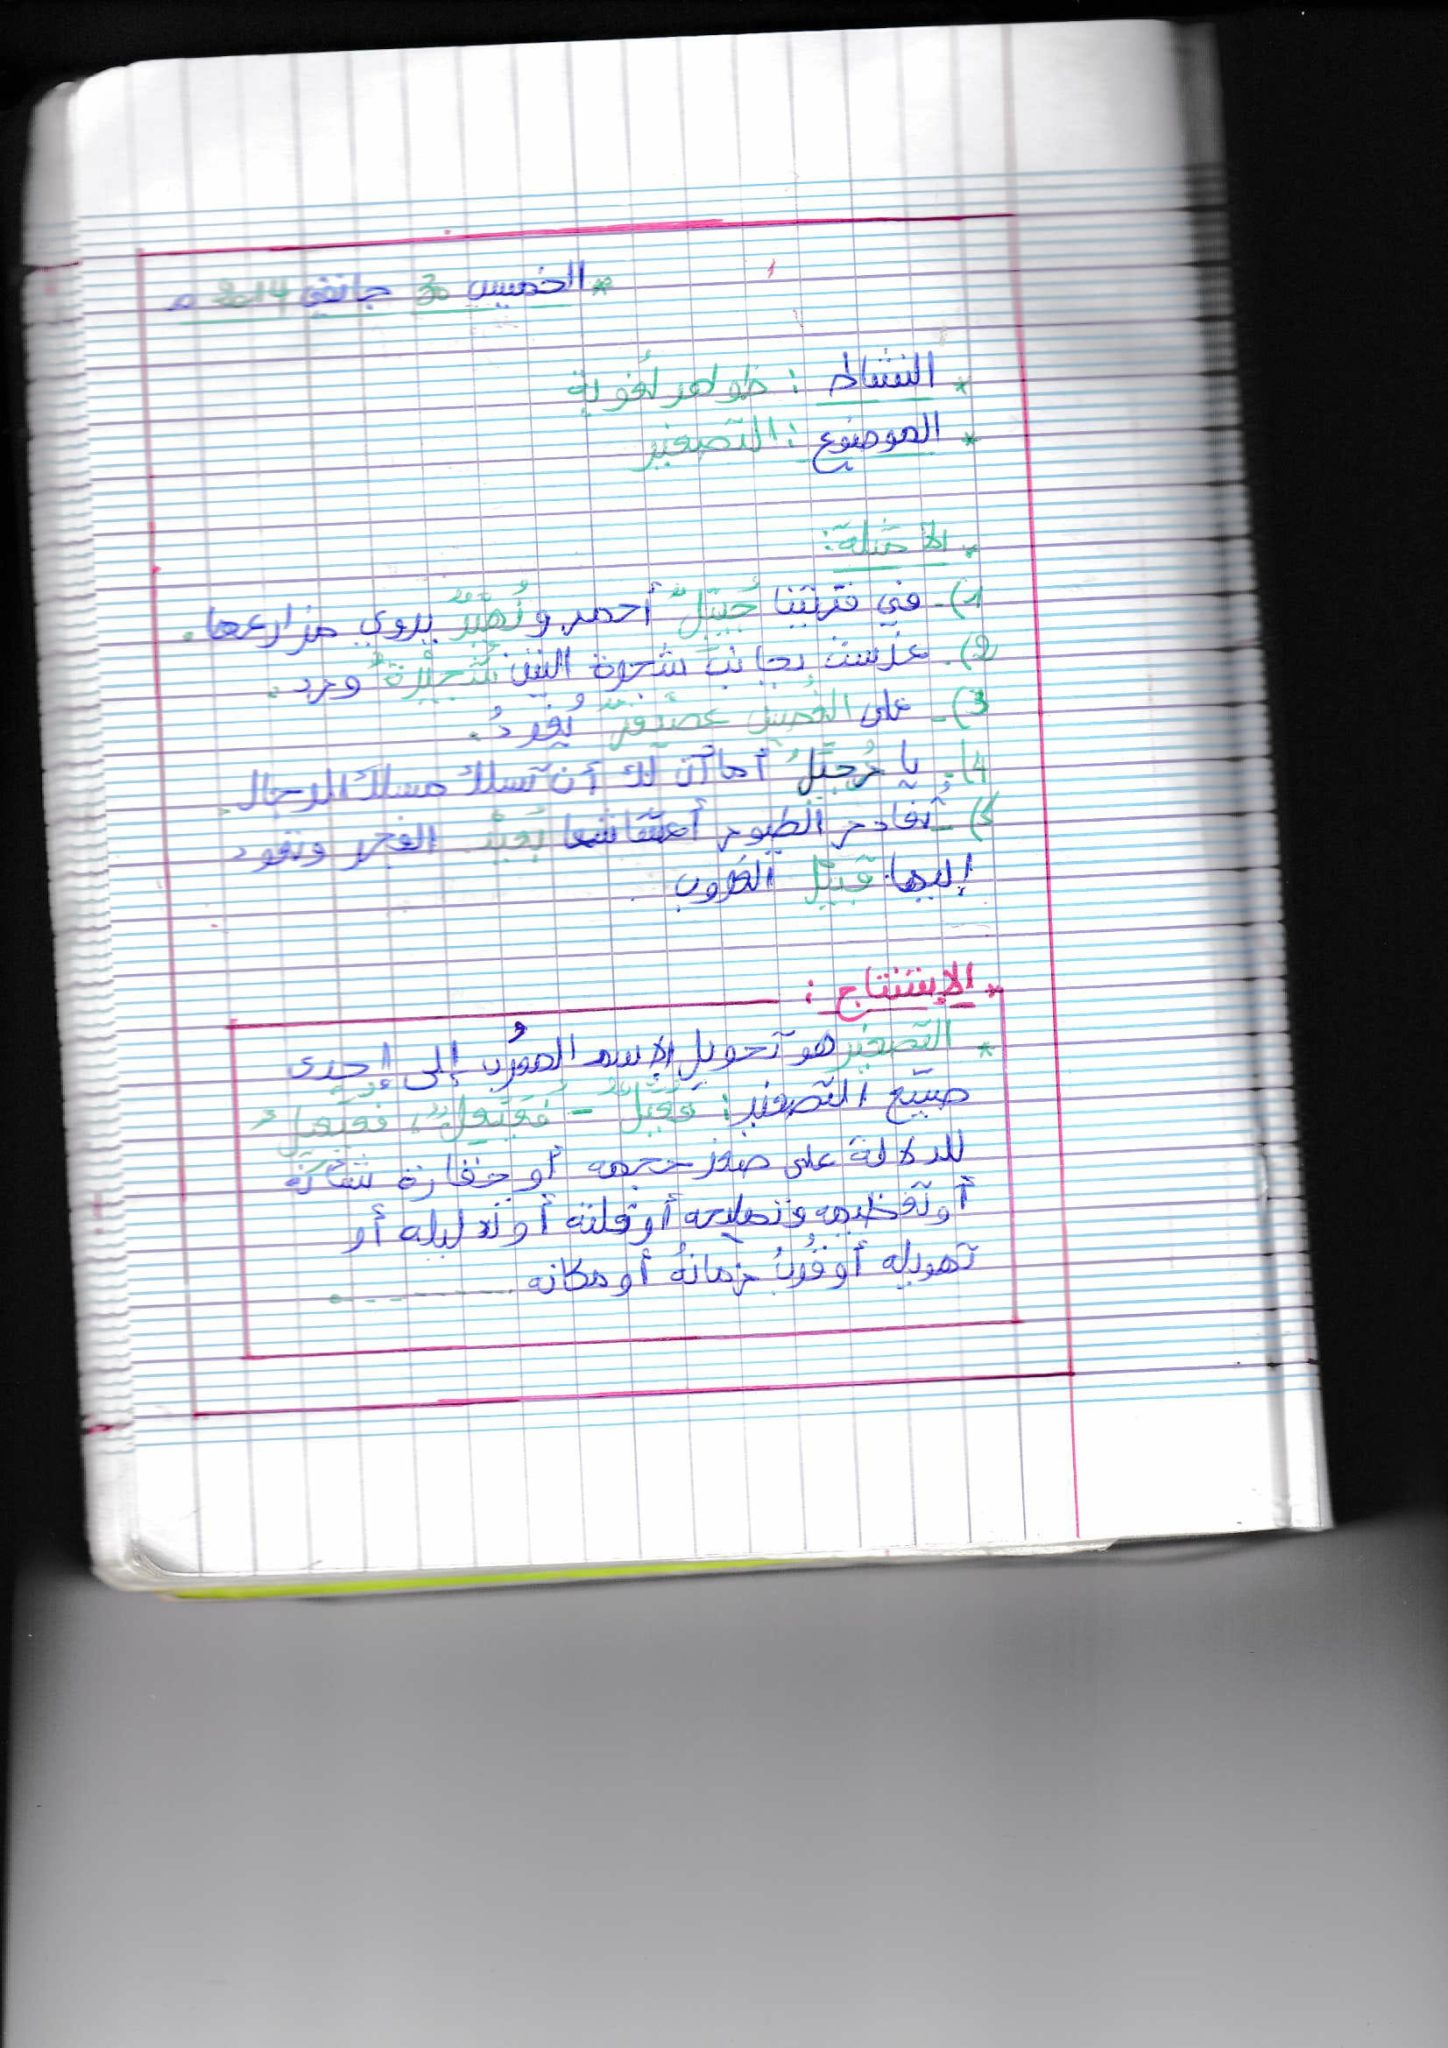 * الخميس 30 جانفي 2014 م
* النشاط : ظواهر لغوية
* الموضوع : التصغير
* الأمثلة :
1)- في قريتنا جُبَيْلٌ أحمر ونُهَيْرٌ يروي مزارعها .
2)- غرست بجانب شجرة التين شُجَيْرَةَ ورد .
3)- على الغُصْنِ عصَيْفرٌ يُغردُ .
4)- يا رُجَيْلُ أما آن لك أن تسلك مسلك الرجال .
5)- تُغادر الطيور أعشاشها بُعَيْدَ الفجر وتعود
إليها قبيْل الغروب .
* الإستنتاج :
* التصغير هو تحويل الإسم المعرب إلى إحدى
صيَغ التصغير : فُعَيْلٌ - فُعَيْعِلٌ ، فُعَيْعِيل
للدلالة على صغر حجمه أو حقارة شأنه
أو تعظيمه وتمليحه أو قلته أو تدليله أو
تهويله أو قُرْبُ زمانهُ أو مكانه .........